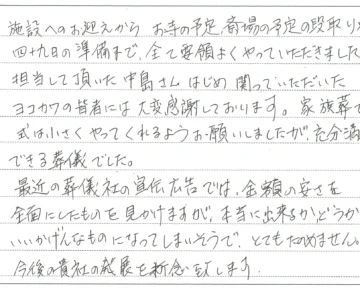 施設へのお迎えから お寺の予定、斎場の予定の段取り
四十九日の準備まで、全て要領よくやっていただきました
担当して頂いた 中島さん はじめ 関っていただいた
ヨコカワの皆者には 大変感謝しております。家族葬で
式は小さくやってくれるようお願いしましたが、充分満
できる葬儀でした。
最近の葬儀社の宣伝広告では、金額の安さを
全面にしたものを見かけますが、本当に出来るかどうか
いいかげんなものになってしまいそうで、とてもたのめません
今後の貴社の発展を祈念致します。